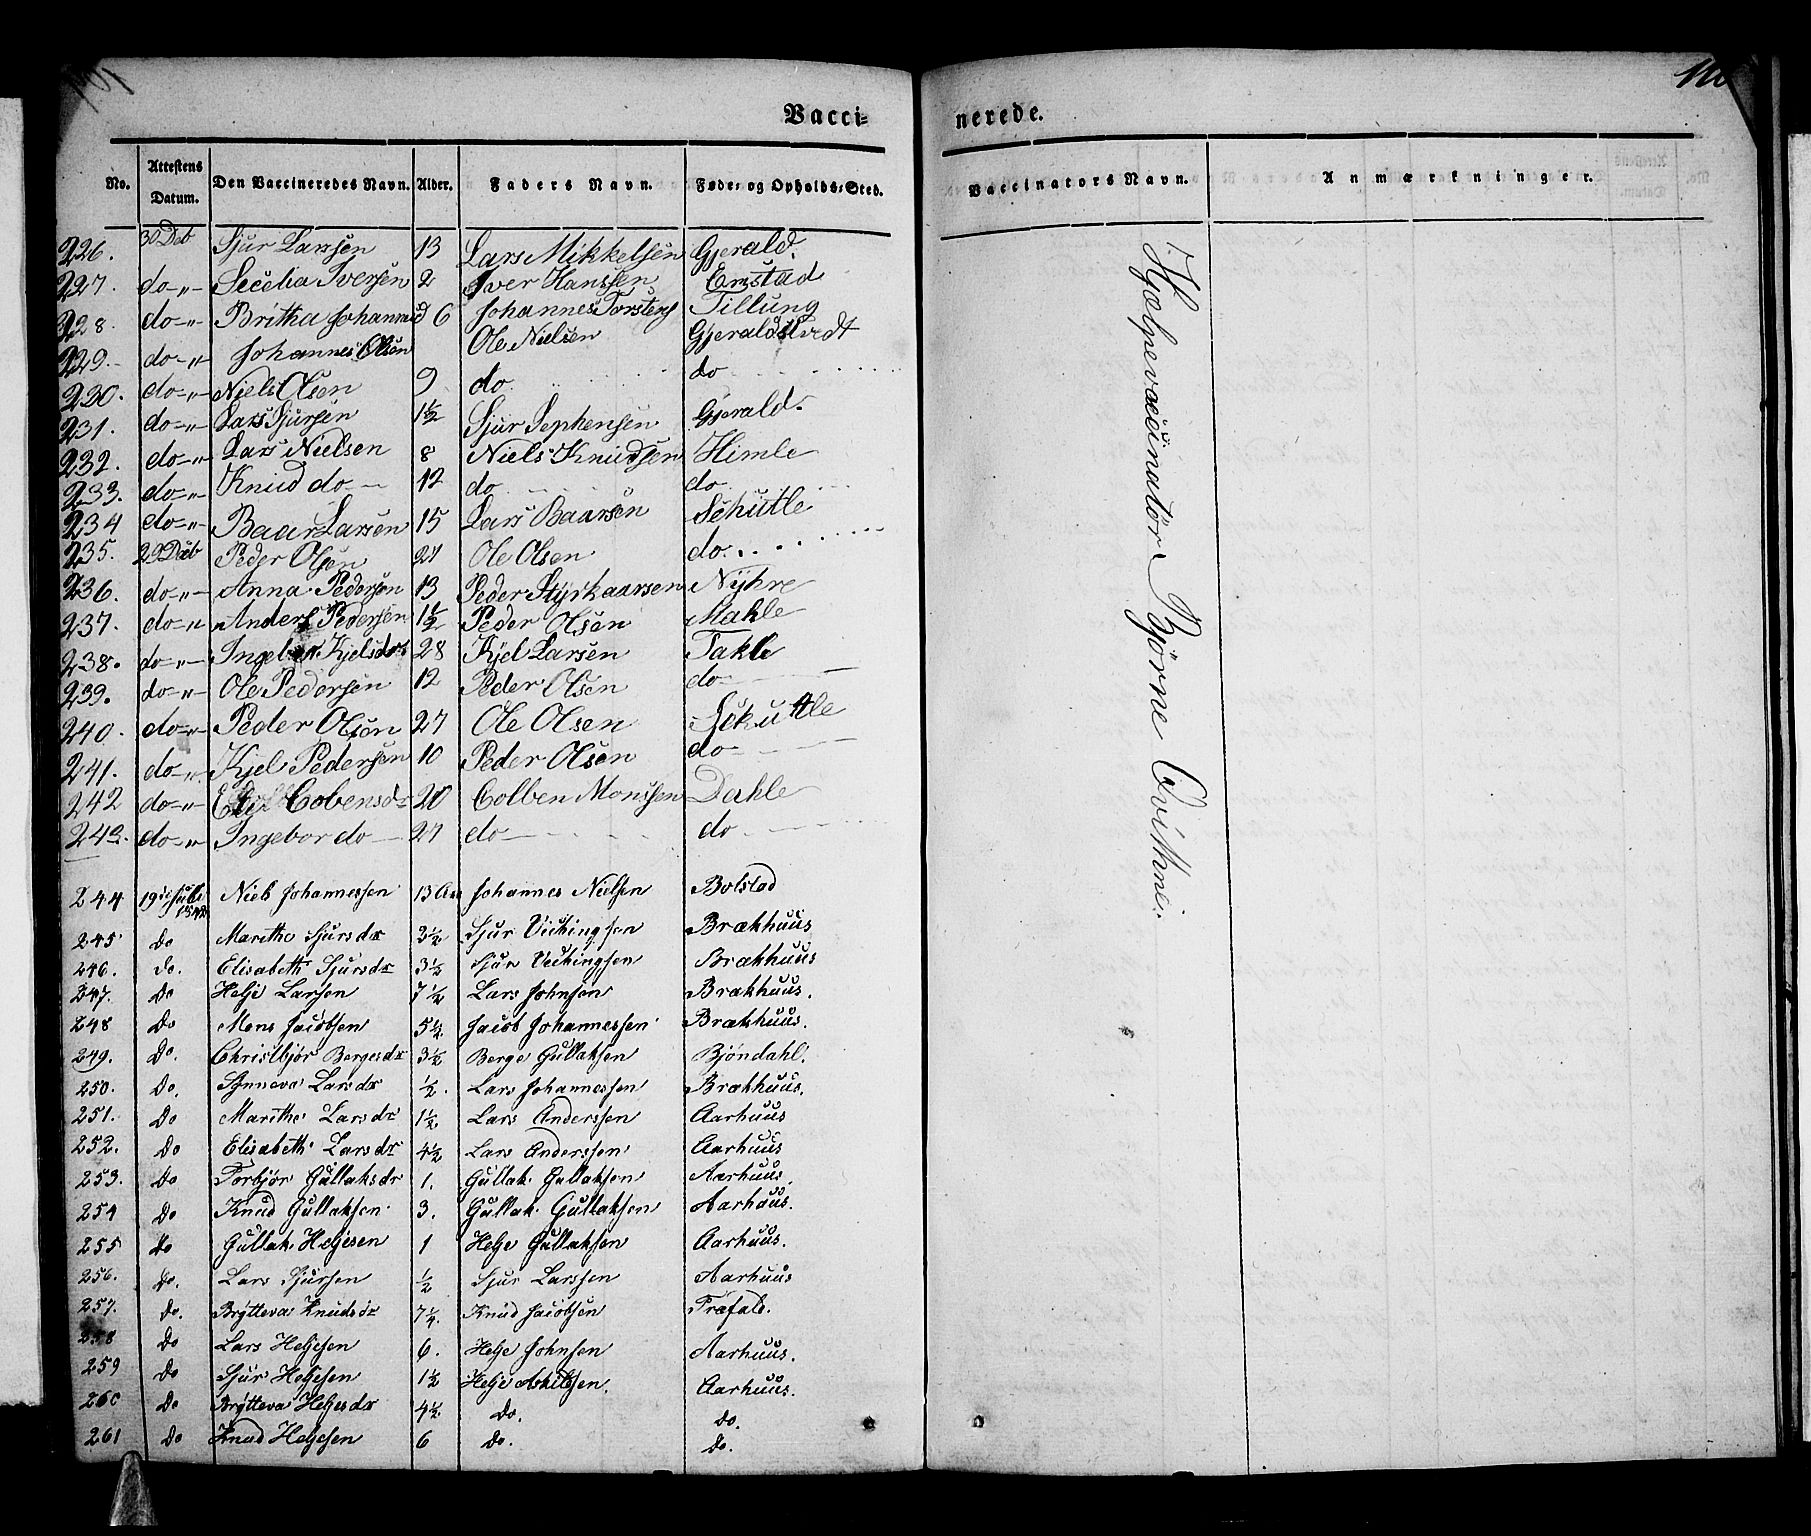 Vacci=
nerede.
No. Attestens Datum. Den Vaccineredes Navn. Alder. Faders Navn. Føde= og Opholds=Sted. Vaccinators Navn. Anmærkninger.
226. 30 Deb Sjur Larsen 13 Lars Mikkelsen Gjerald.
227. do-"- Secelia Iversen 2 Iver Hanssen Emstad
228. do-"- Britha Johannesd 6 Johannes Torstens Tillung
229.- do-"- Johannes Olsen Ole Nielsen Gjeraldstvedt
230. do-"- Niels Olsen 9 do do
231. do-"- Lars Sjursen 1½ Sjur Sephensen Gjerald.
232. do-"- Lars Nielsen 8 Niels Knudsen Himle
233. do-"- Knud do- 12 do do
234 do-"- Baar Larsen 15 Lars Baarsen Schutle
235. 29 Deb Peder Olsen 21 Ole Olsen do
236. do-"- Anna Pedersen 13 Peder Styrkaarsen Nyhre
237. do-" Anders Pedersen 1½ Peder Olsen Mahle
238. do-"- Ingebor Kjelsdr 28 Kjel Larsen Takle
239. do-"- Ole Pedersen 12 Peder Olsen do
240. do-"- Peder Olsen 27 Ole Olsen Skutle
241. do-". Kjel Pedersen 10 Peder Olsen do
242 do-"- Cobensdr 20 Colben Monssen Dahle
243. do-"- Ingebor do 27 do do
244 19de Juli 1842 Niels Johannessen 13 Aar Johannes Nielsen Bolstad
245 Do Marithe Sjursdr 3½ Sjur Vickingsen Brækhuus
246. do. Elisabeth Sjursdr 3½ Sjur Vickingsen Brækhuus
247. Do Helje Larsen 7½ Lars Johnsen Brækhuus.
248 Do Mons Jacobsen 5½. Jacob Johannessen Brækhuus.
249. Do. Christbjør Bergesdr 3½ Berge Gullaksen Bjöndahl.
250. Do. Synneva Larsdr ½. Lars Johannessen Brækhuus.
251. Do Marithe Larsdr 1½ Lars Anderssen Aarhuus
252. Do Elisabeth Larsdr 4½ Lars Anderssen Aarhuus
253. Do Torbjör Gullaksdr 1. Gullak Gullaksen Aarhuus.
254 Do Knud Gullaksen 3. Gullak Gullaksen Aarhuus.
255 Do Gullak Heljesen 1 Helje Gullaksen Aarhuus.
256. Do. Lars Sjursen ½ Sjur Larssen Aarhuus
257. Do. Brytteva Knudsdr 7¼. Knud Jacobsen Træfald.
258 Do Lars Heljesen 6. Helje Johnsen Aarhuus.
259 Do Sjur Heljesen 1½ Helje Askilsen. Aarhuus.
260 Do Brytteva Heljesdr 4½ Do. do.
261 Do Knud Heljesen 6 Do. Do.
Hjælpevaccinatør Bjørne Qvithne.